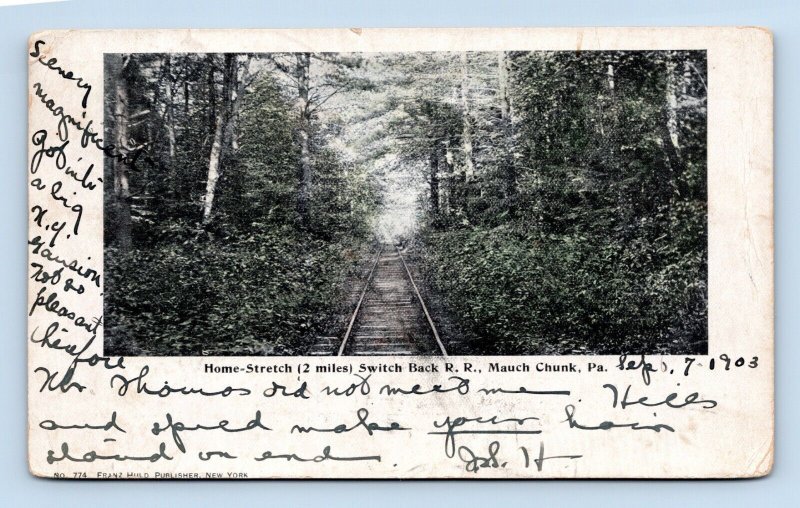 Scenery
magnificent
Got into
a big
N.Y.
Not so
pleasant
therefore
Home-Stretch (2 miles) Switch Back R. R., Mauch Chunk, Pa. Sept. 7. 1903
Mr Thomas did not meet me. Hills
and speed make your hair
stand on end. H
No. 774 Franz Huld Publisher, New York